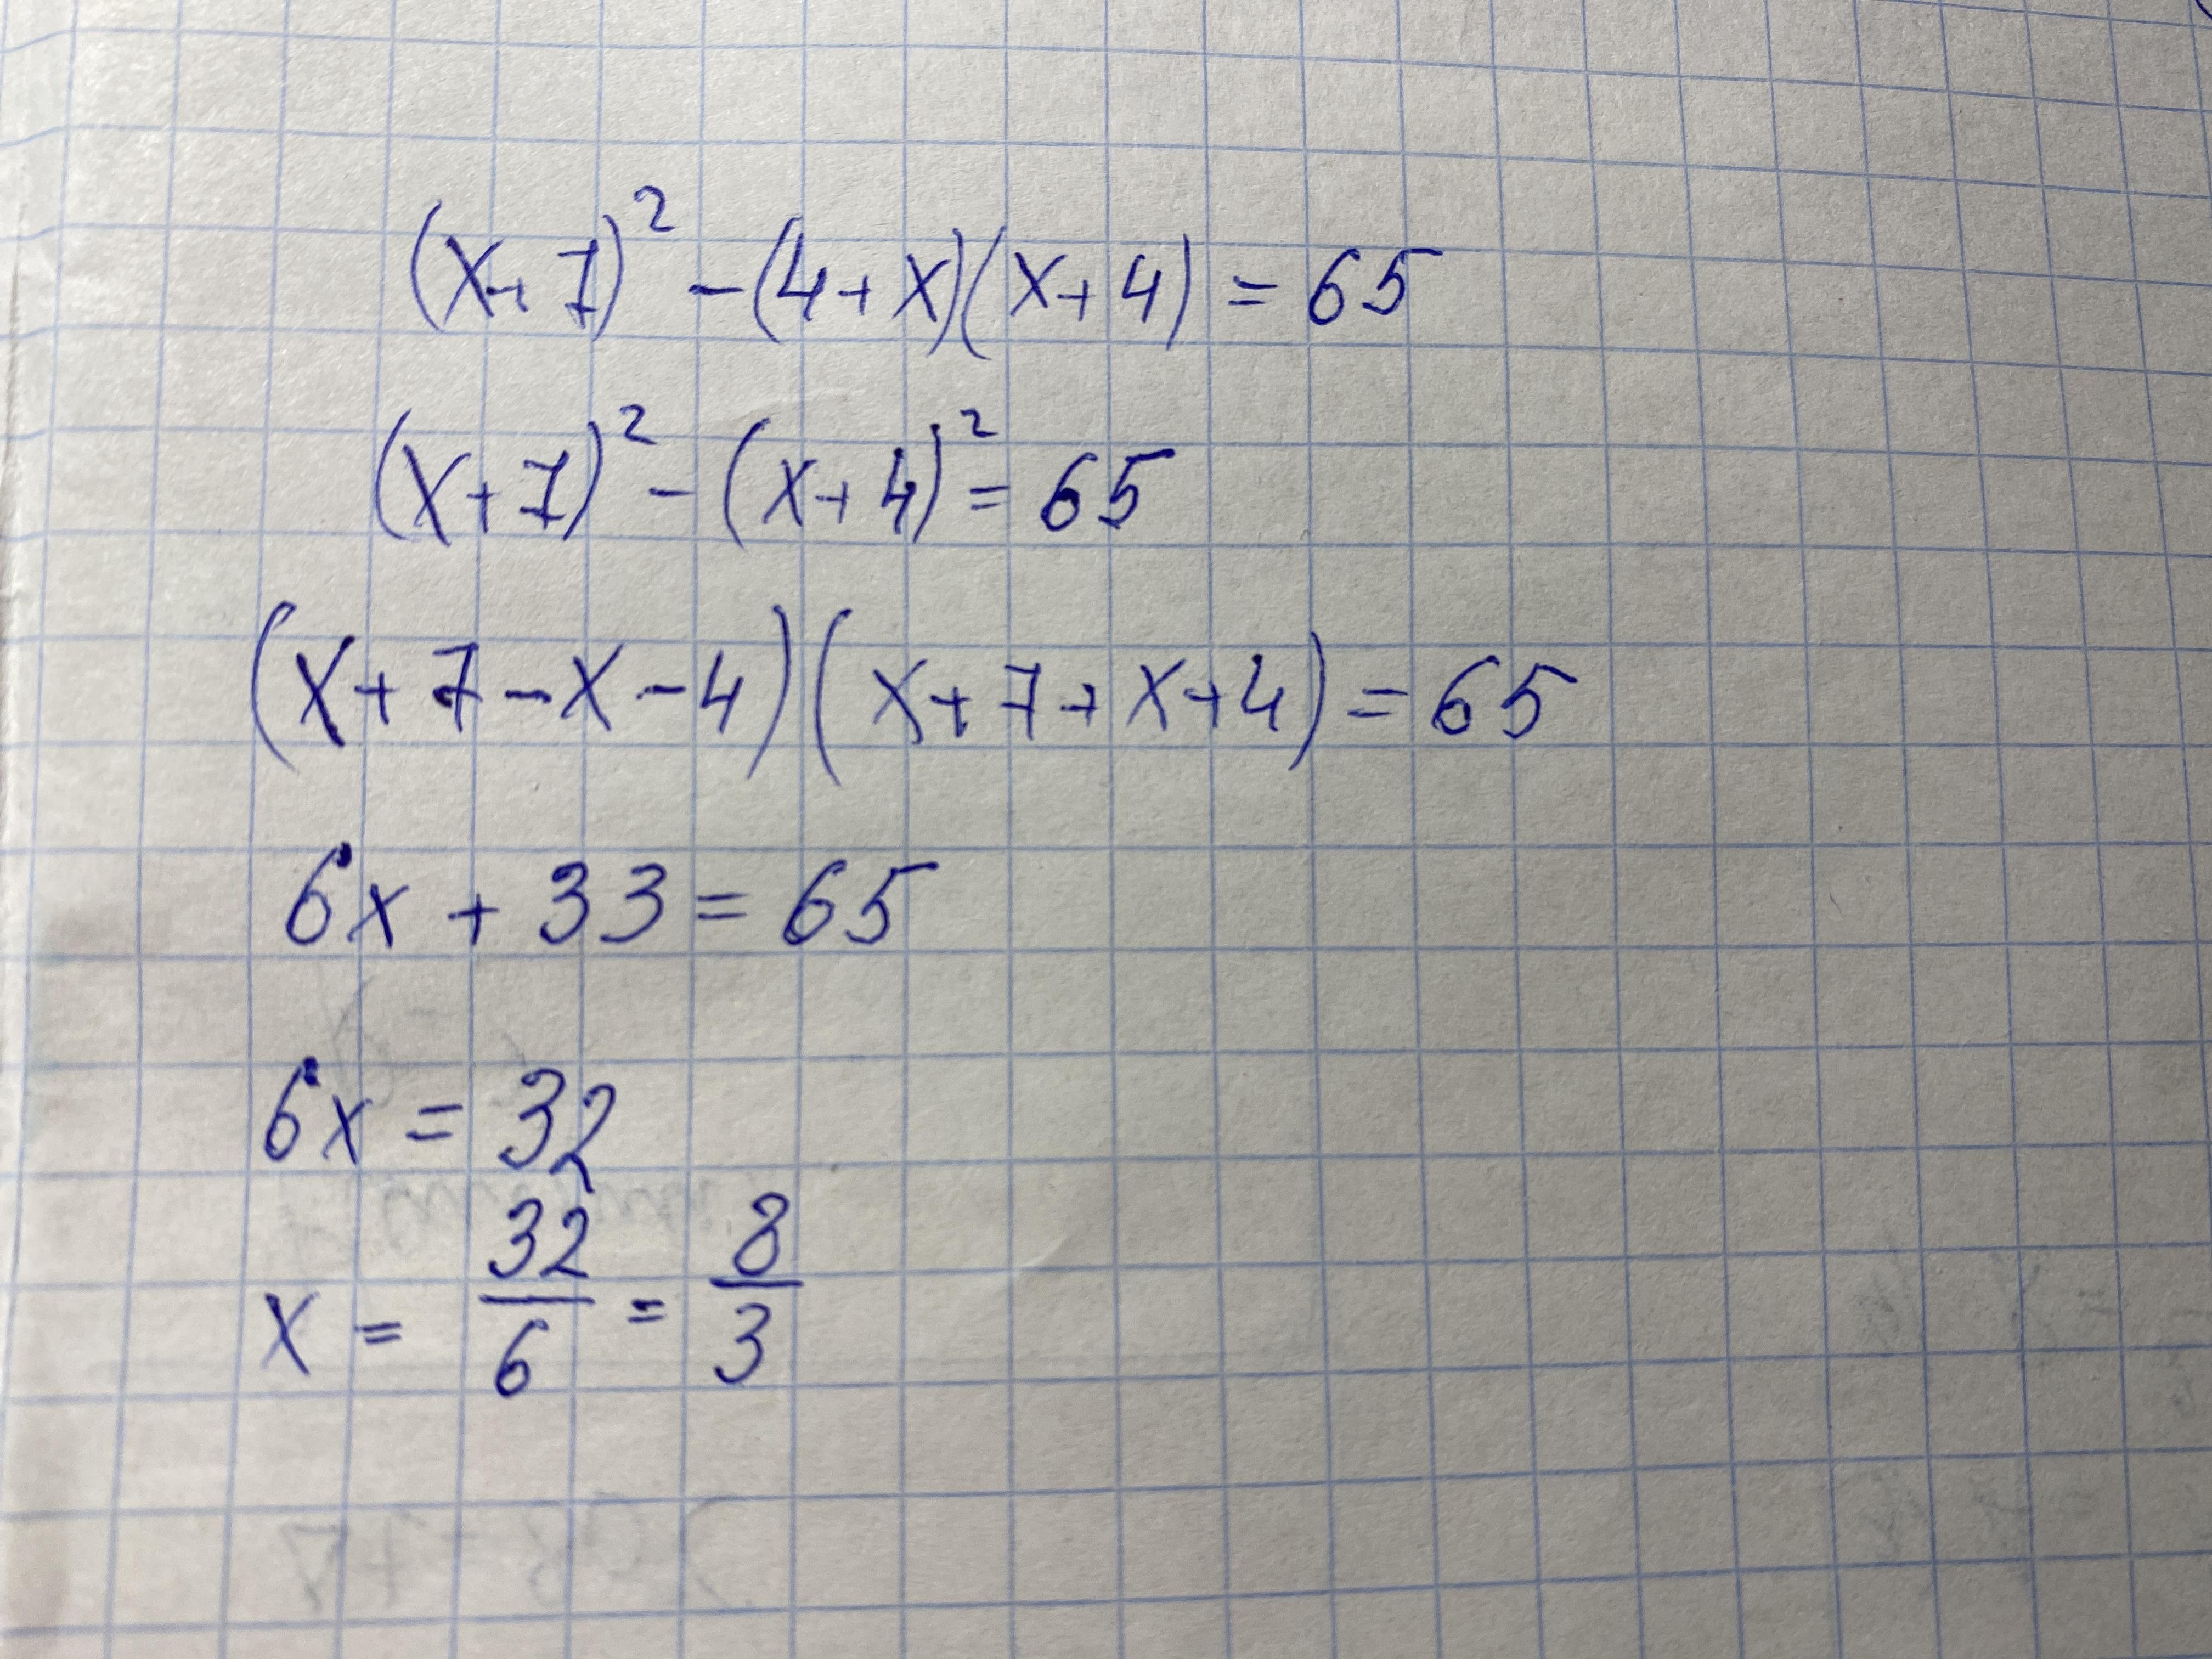 (x+7)² - (4+x)(x+4) = 65
(x+7)² - (x+4)² = 65
(x+7-x-4)(x+7+x+4) = 65
6x + 33 = 65
6x = 32
x = 32/6 = 8/3